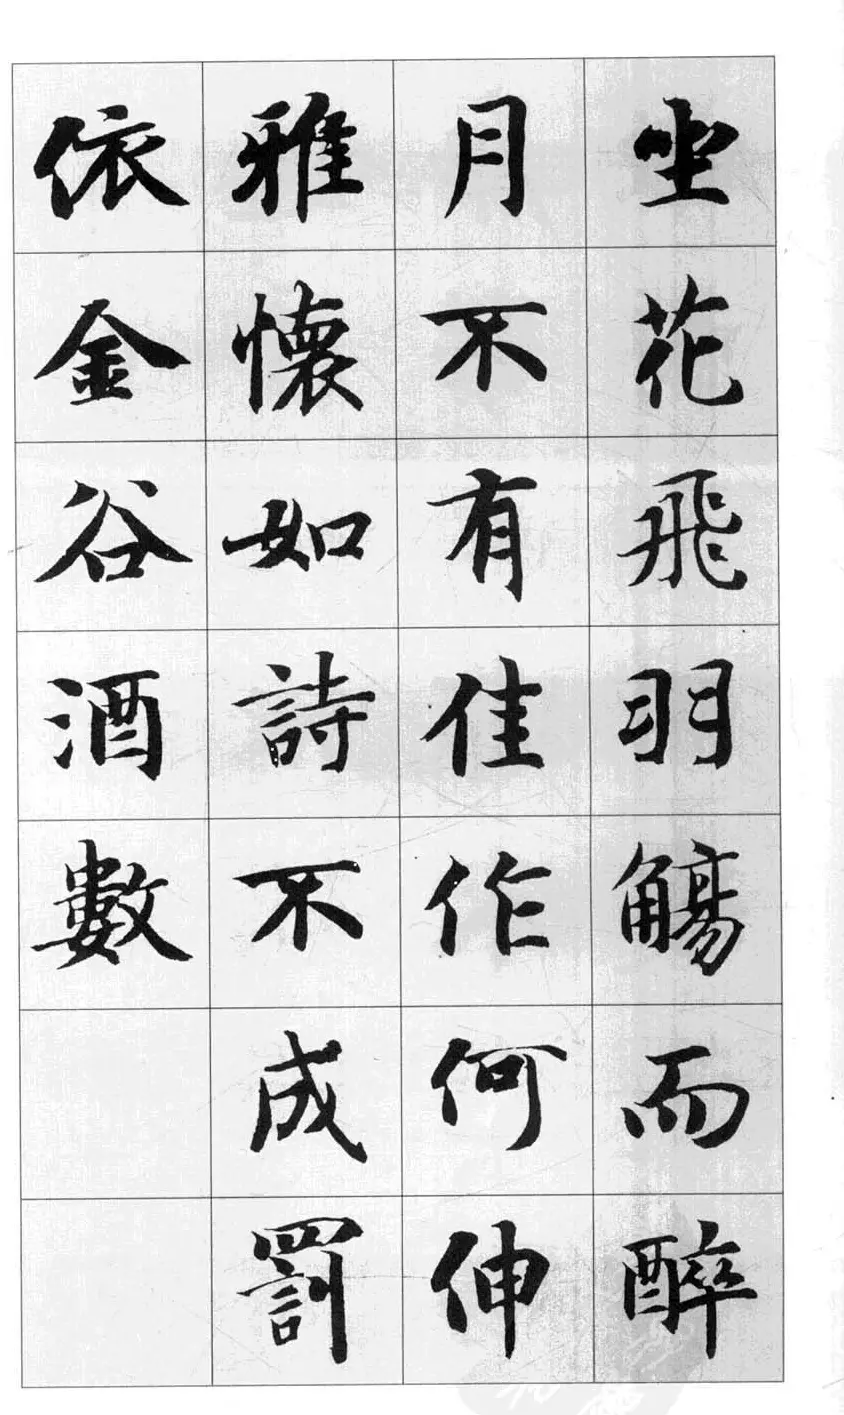 坐花飛羽觴而醉
月不有佳作何伸
雅懷如詩不成罰
依金谷酒數